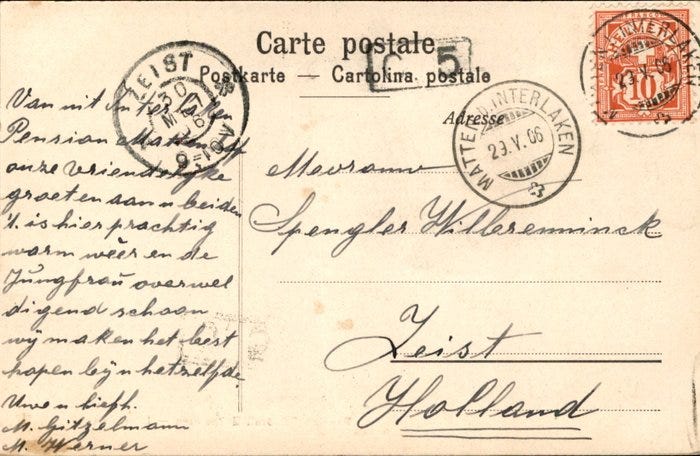 Carte postale
Postkarte — Cartolina postale
C 5
Adresse
ZEIST
MATTEN B. INTERLAKEN
29.V.06
29.V.06
10
FRANCO
Van uit
Pension
onze vriendelijke
groeten aan u beiden
't is hier prachtig
warm wéér en de
Jungfrau overwel
digend schoon
wij maken het best
hopen bij u hetzelfde.
Uwe
M. Gitzelmann
M. Werner
Mevrouw
Spengler Willereminck
Zeist
Holland